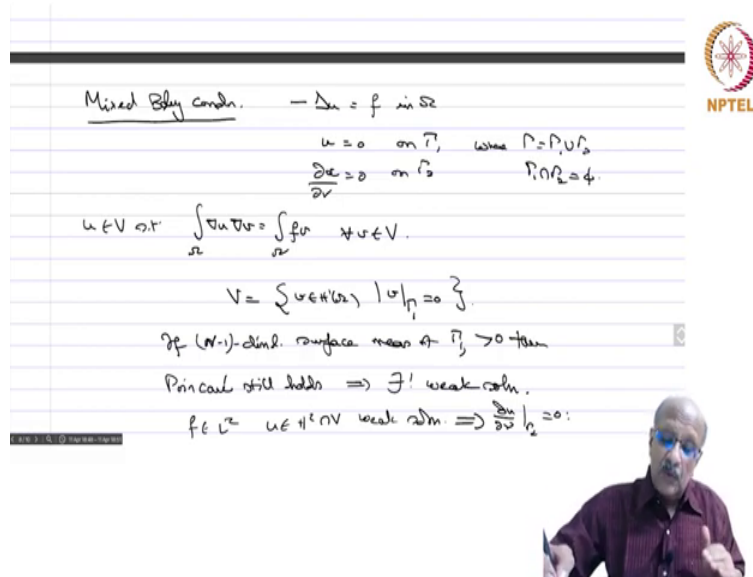 Mixed Bdry condn. −Δu = f in Ω
NPTEL
u = 0 on Γ₁ where Γ = Γ₁∪Γ₂
∂u/∂ν = 0 on Γ₂ Γ₁∩Γ₂ = φ.
u∈V s.t. ∫_Ω ∇u∇v = ∫_Ω fv ∀v∈V.
V = {v∈H¹(Ω) | v|_Γ₁ = 0}.
If (N-1)-diml. surface meas of Γ₁ > 0 then
Poincaré still holds ⇒ ∃! weak soln.
f∈L² u∈H²∩V weak soln. ⇒ ∂u/∂ν|_Γ₂ = 0: